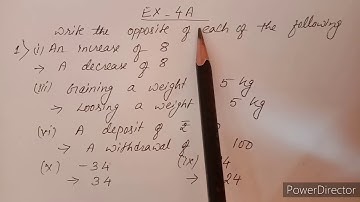 EX-4A
Write the opposite of each of the following
1) (i) An increase of 8
→ A decrease of 8
(iii) Gaining a weight 5 kg
→ Loosing a weight 5 kg
(vi) A deposit of
→ A withdrawal of 100
(x) -34 (ix) 4
→ 34 → 24
PowerDirector